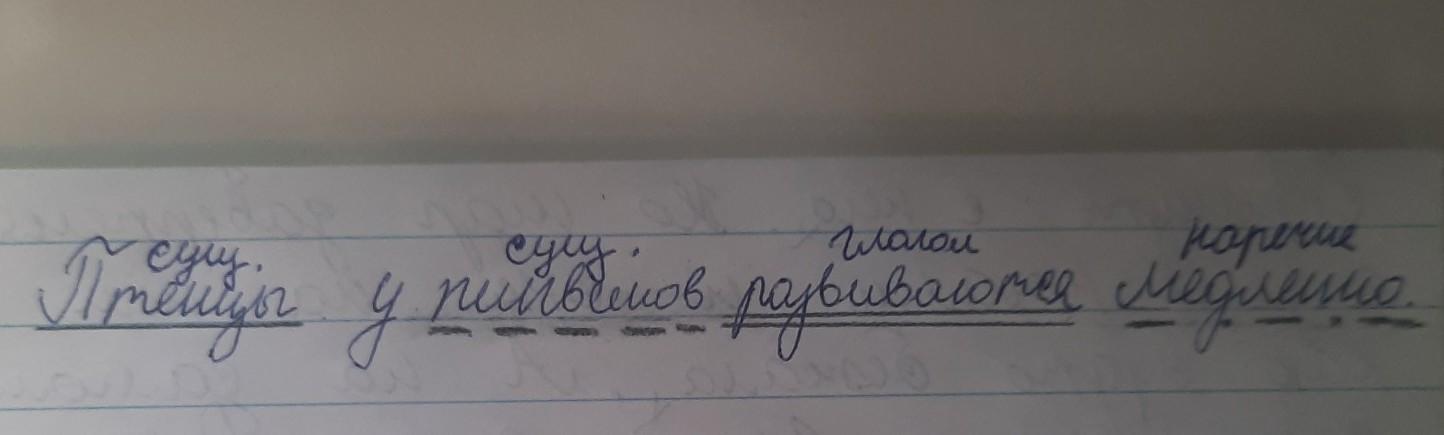 сущ. сущ. глагол наречие
Птенцы у пингвинов развиваются медленно.